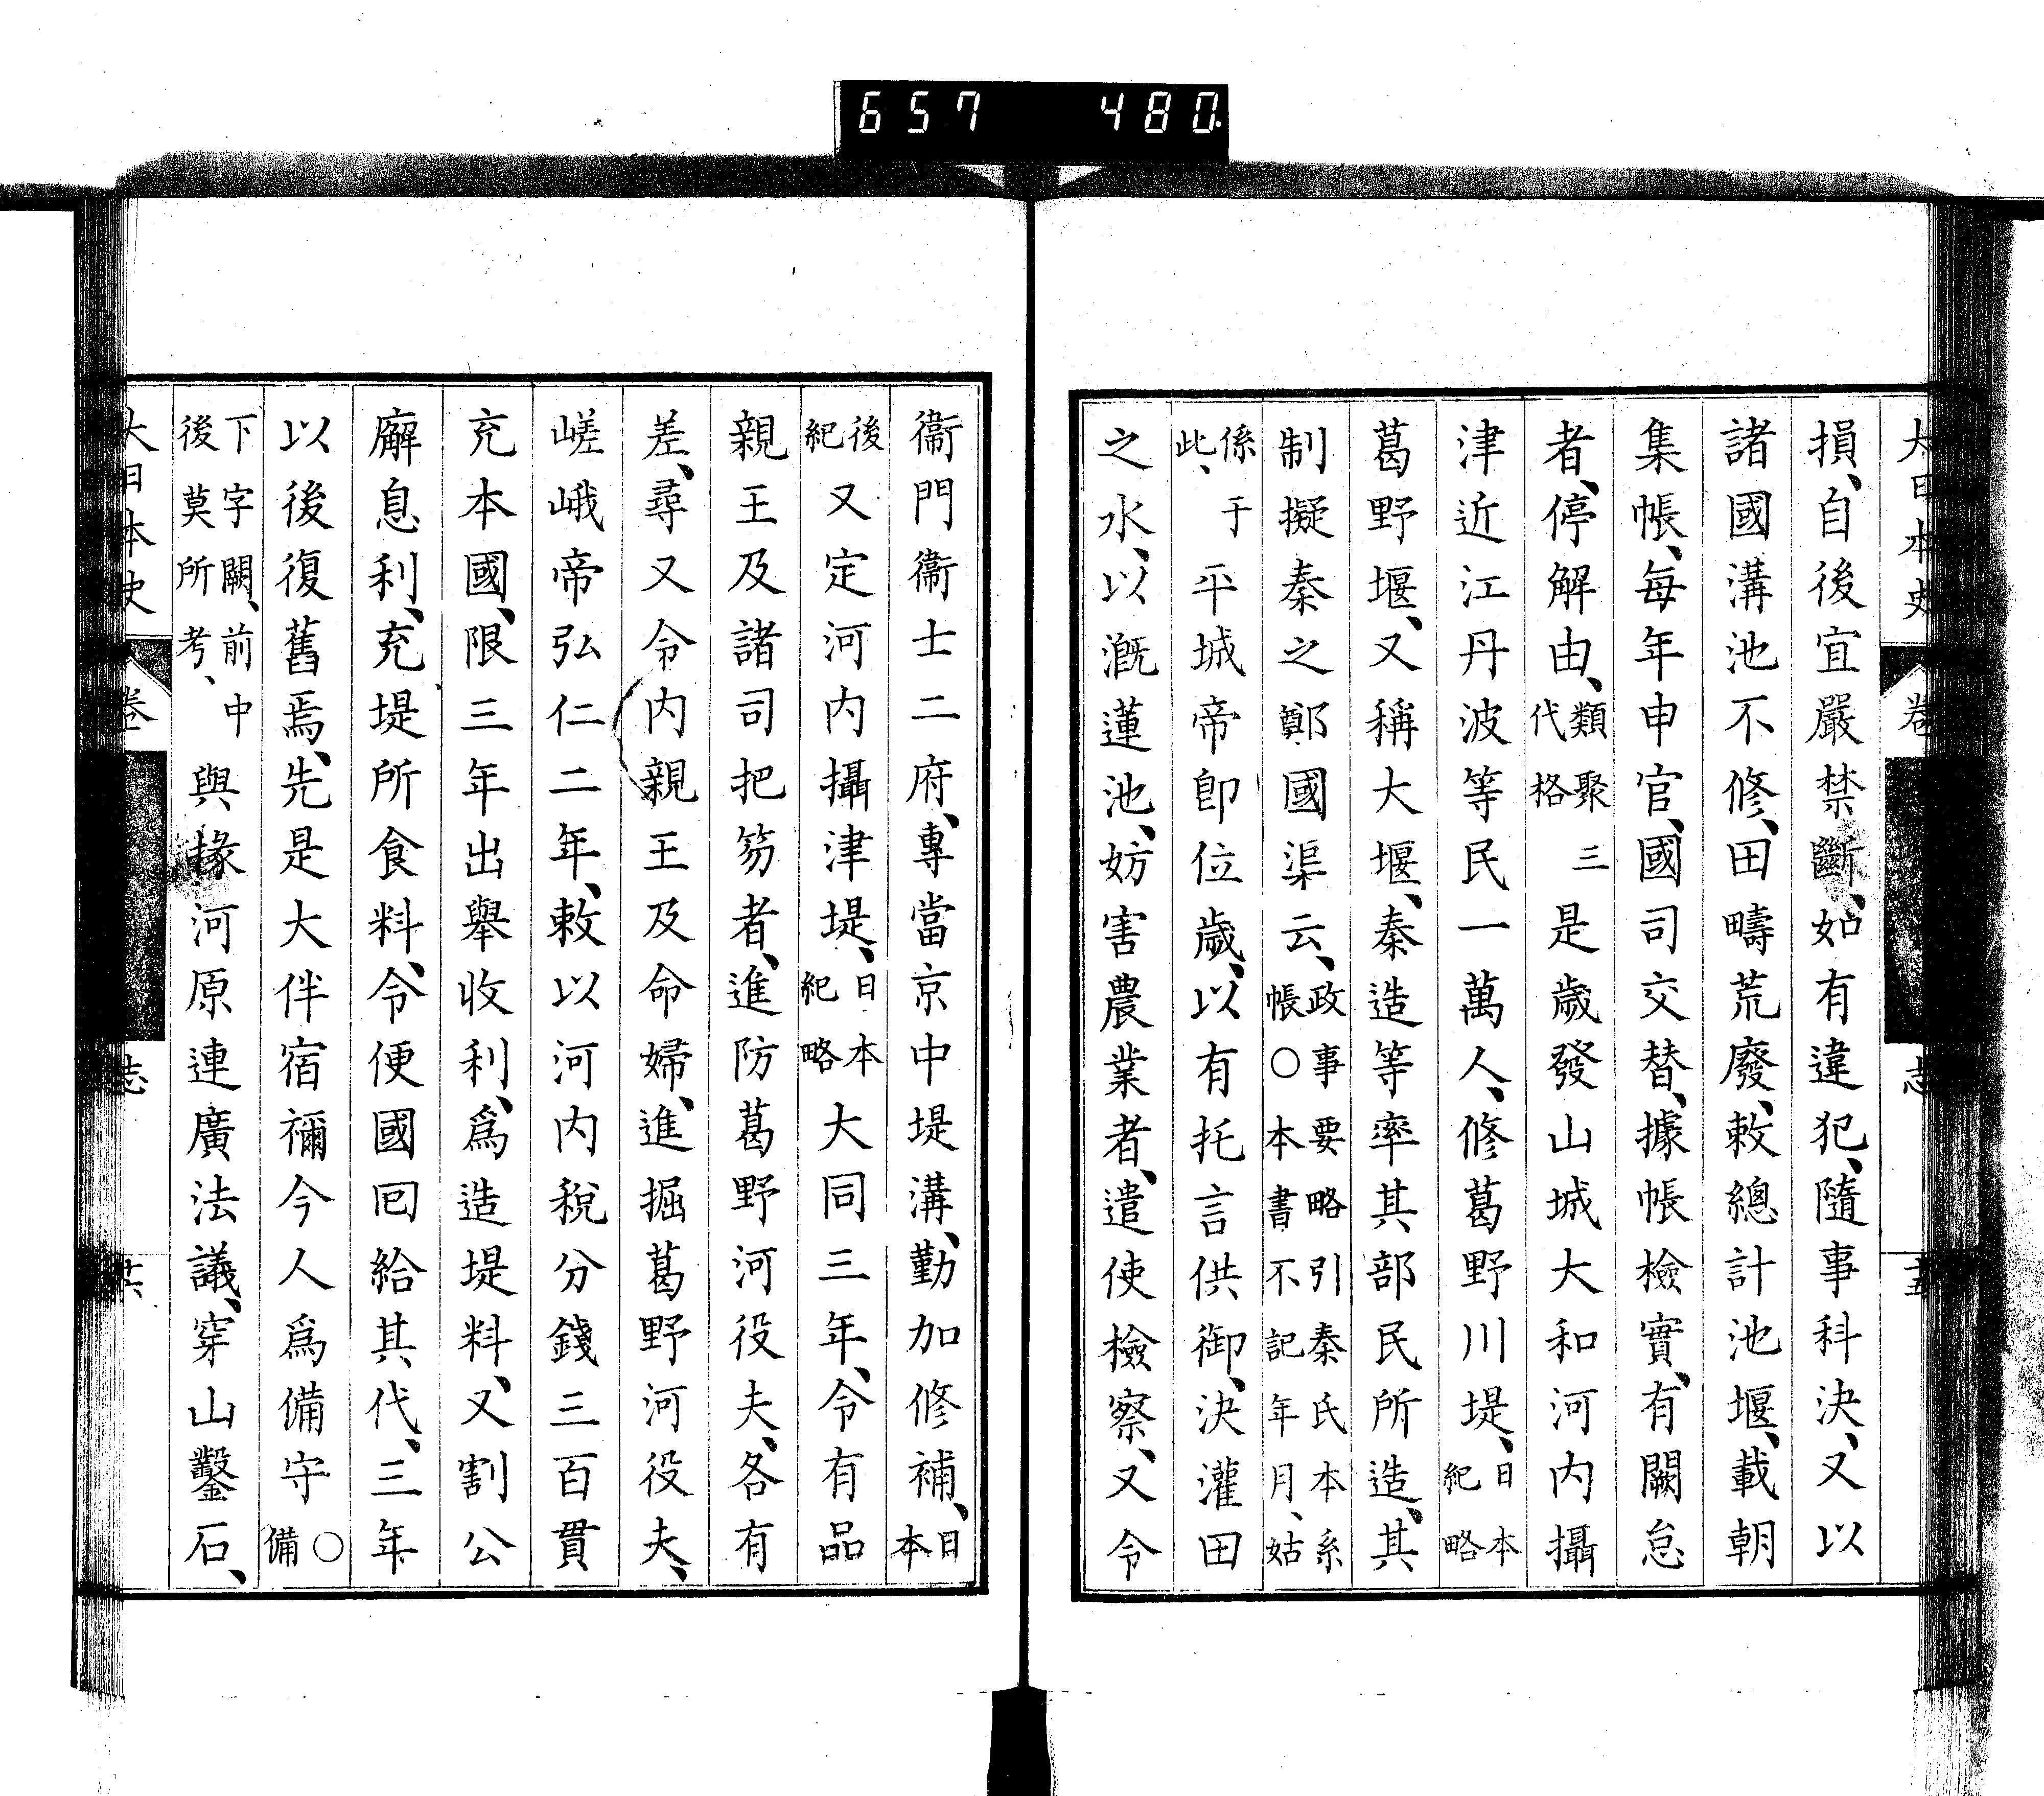 657 480
大日本史 卷 志 十五
損、自後宜嚴禁斷、如有違犯、隨事科決、又以
諸國溝池不修、田疇荒廢、敕總計池堰、載朝
集帳、每年申官、國司交替、據帳檢實、有闕怠
者、停解由、類聚三代格是歲發山城大和河內攝
津近江丹波等民一萬人、修葛野川堤、日本紀略
葛野堰、又稱大堰、秦造等率其部民所造、其
制擬秦之鄭國渠云、政事要略引秦氏本系帳○本書不記年月、姑
係于此、平城帝卽位歲、以有托言供御、決灌田
之水、以漑蓮池、妨害農業者、遣使檢察、又令
衞門衞士二府、專當京中堤溝、勤加修補、日本
後紀又定河內攝津堤、日本紀略大同三年、令有品
親王及諸司把笏者、進防葛野河役夫、各有
差、尋又令內親王及命婦、進掘葛野河役夫、
嵯峨帝弘仁二年、敕以河內稅分錢三百貫
充本國、限三年出擧收利、爲造堤料、又割公
廨息利、充堤所食料、令便國囘給其代、三年
以後復舊焉、先是大伴宿禰今人爲備守○備
下字闕、前中後莫所考、與掾河原連廣法議、穿山鑿石、
大日本史 卷 志 十六